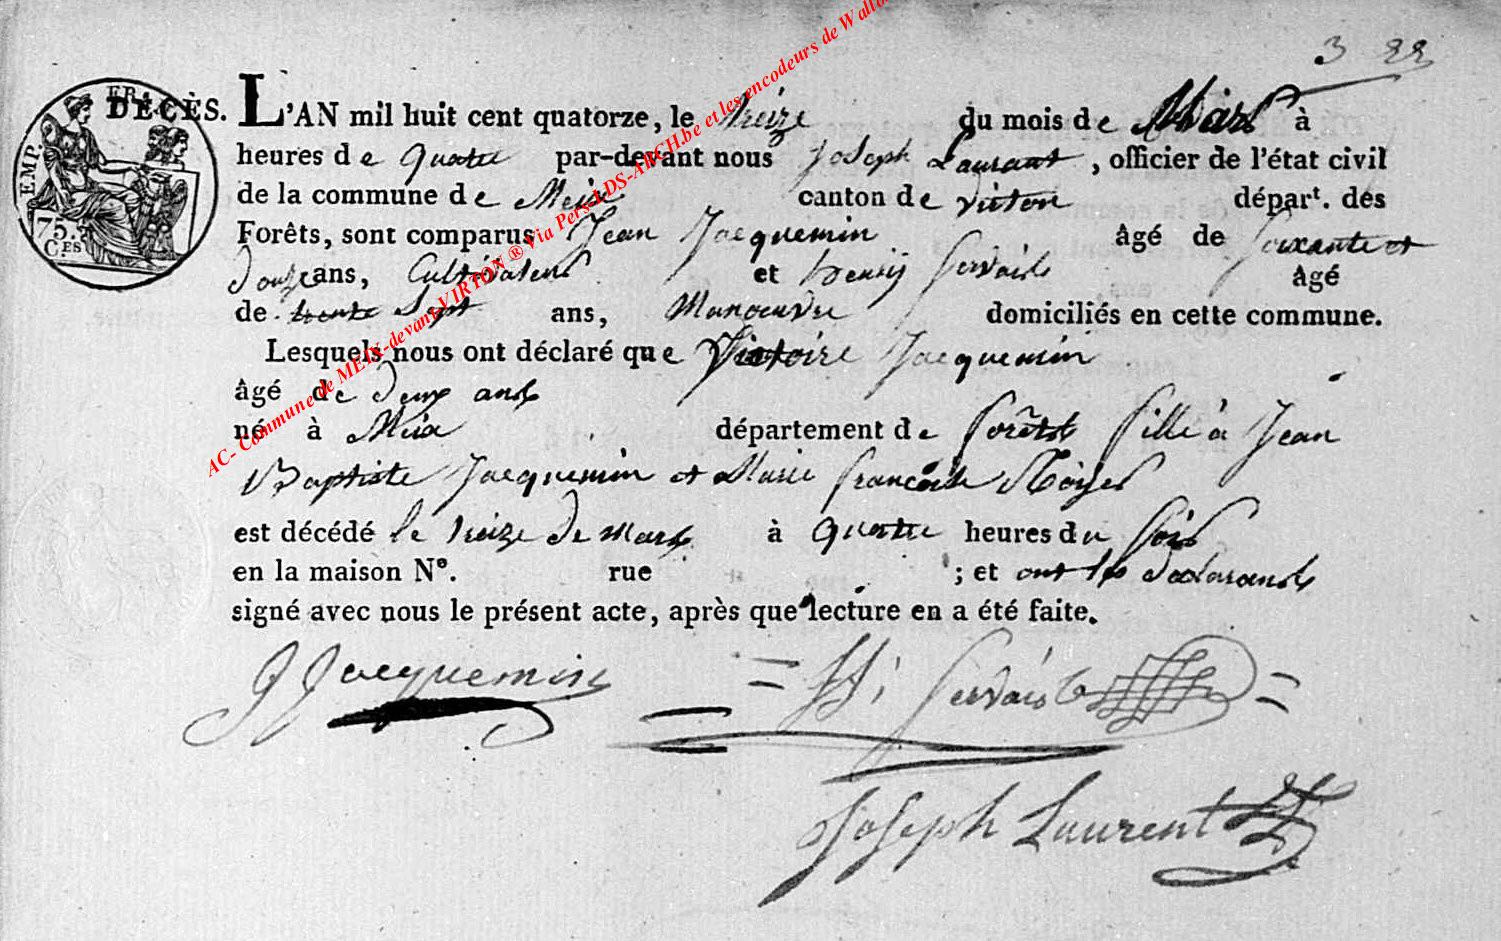 3 22
DÉCÈS. L'AN mil huit cent quatorze, le treize du mois de Mars à
heures de quatre par-devant nous Joseph Laurant, officier de l'état civil
de la commune de Meix canton de virton départ. des
Forêts, sont comparus Jean Jacquemin âgé de soixante et
douze ans, Cultivateur et henrij Servais âgé
de trente Sept ans, Manoeuvre domiciliés en cette commune.
Lesquels nous ont déclaré que Victoire Jacquemin
âgé de deux ans
né à Meix département de forêts fille à Jean
Baptiste Jacquemin et Marie francoise
est décédé le treize de mars à quatre heures du soir
en la maison N°. rue ; et ont les declarants
signé avec nous le présent acte, après que lecture en a été faite.
J Jacquemin = H Servais =
Joseph Laurent
EMP. FRA
75. C.ES
AC- Commune de MEIX-devant-VIRTON ® Via Pers-LDS-ARCH.be et les encodeurs de Wallo